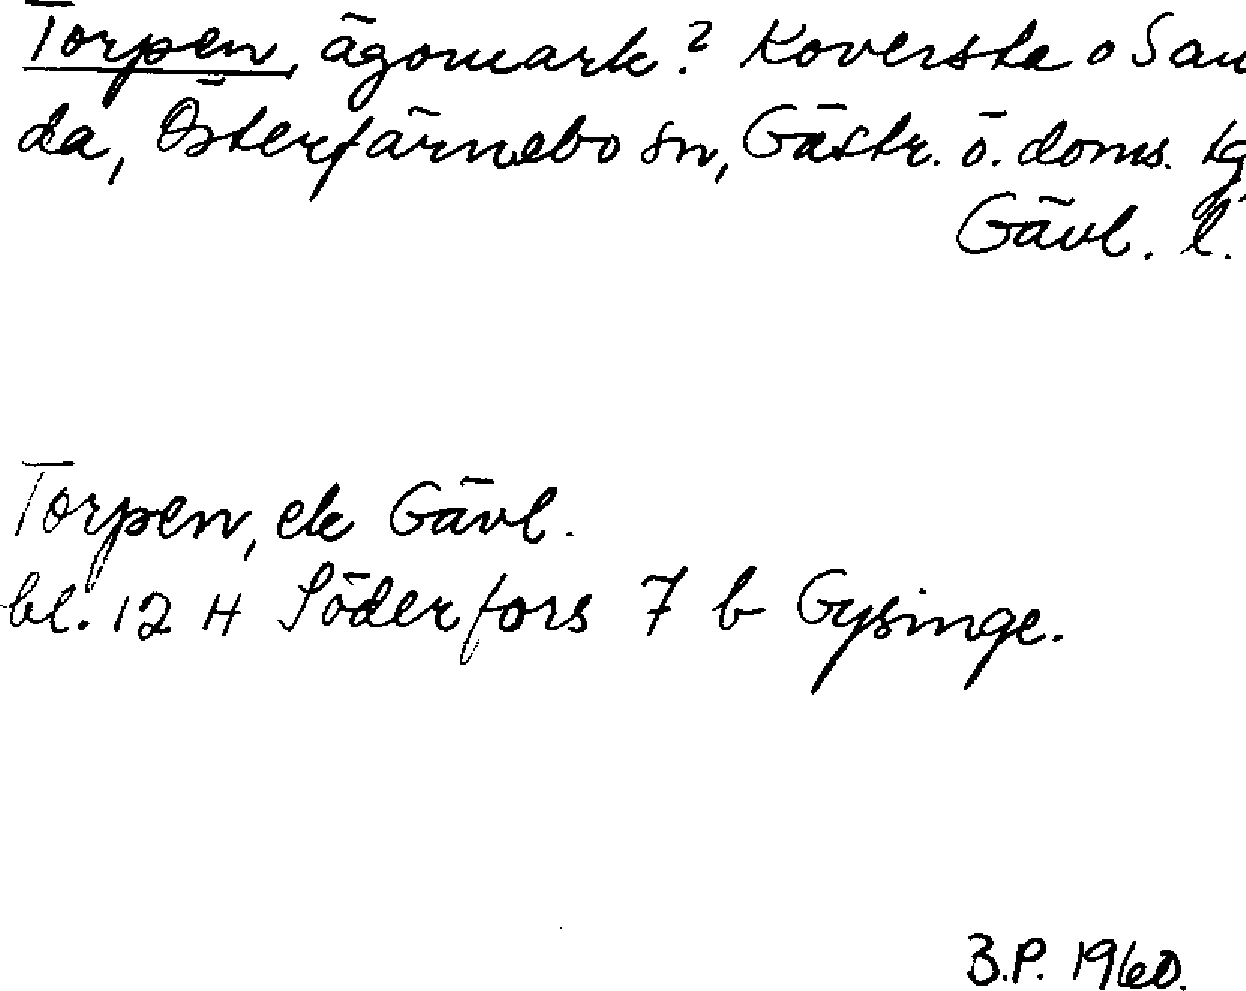 Torpen, ägomark? Koversta o San
da, Österfärnebo sn, Gästr. ö. doms. tg
Gävl. l.
Torpen, ek Gävl.
bl. 12 H Söderfors 7 b Gysinge.
B.P. 1960.